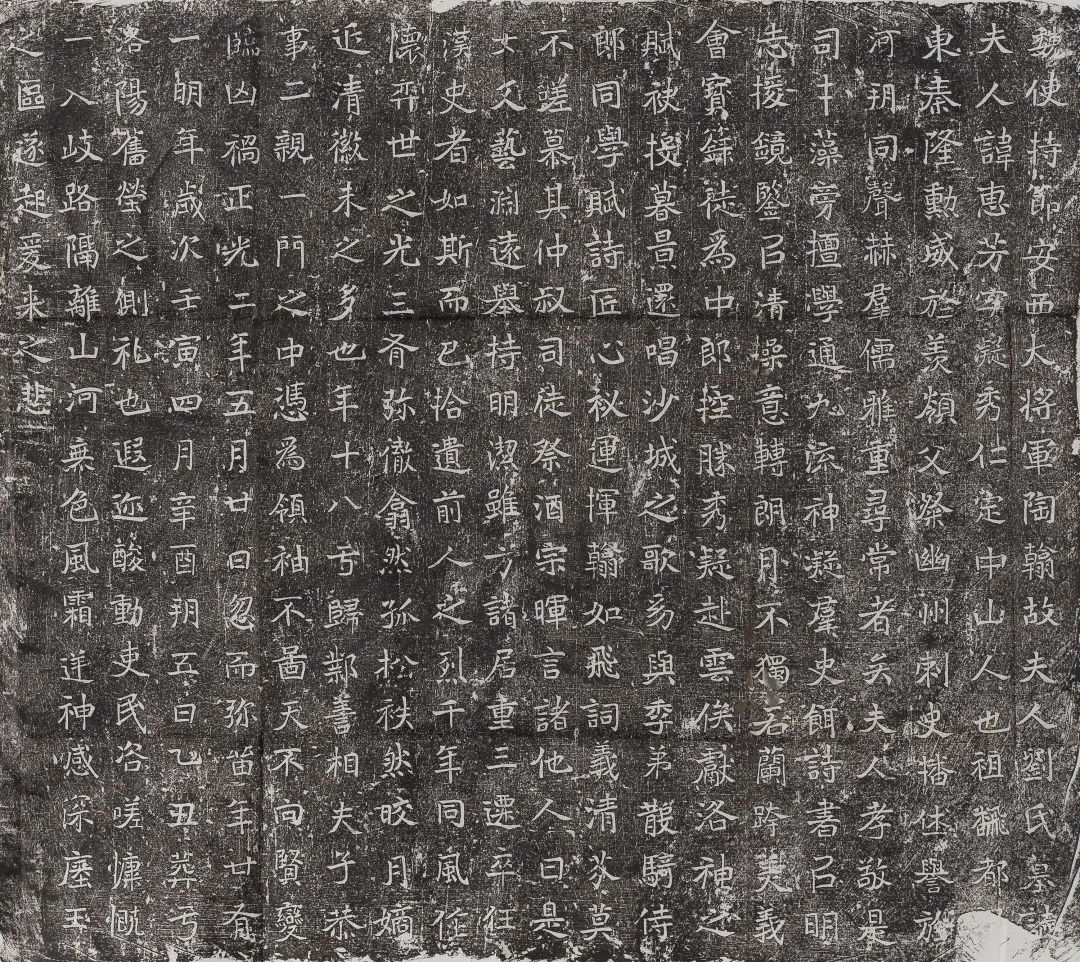 魏使持節安西大將軍陶翰故夫人劉氏墓誌
夫人諱惠芳字凝秀仁定中山人也祖巍都
東秦隆勳威於羌領父粲幽州刺史播休譽於
河朔同聲赫羣儒雅重尋常者矣夫人孝敬是
司才藻旁擅學通九流神凝羣史餌詩書以明
志援鏡鑒以清操意轉朗月不獨若蘭跨美義
會寶籙徒爲中郎控勝秀凝赴雲俟獻洛神之
賦袂授暮景還唱沙城之歌易與季弟散騎侍
郎同學賦詩匠心秘運揮翰如飛詞義清芬莫
不蹉慕其仲叔司徒祭酒宗暉言諸他人曰是
女文藝淵遠舉持明潔雖方諸居重三遷卒往
漢史者如斯而已拾遺前人之烈千年同風任
懷弈世之光三脊弥徹翕然孤松袟然皎月嫡
近清徽未之多也年十八亏歸鄴善相夫子恭
事二親一門之中憑為領袖不啚天不向賢變
臨凶禍正光二年五月廿日忽而弥笛年廿有
一明年歲次壬寅四月辛酉朔五日乙丑葬亏
洛陽舊塋之側礼也遐迩酸動吏民咨嗟慷慨
一入岐路隔離山河無色風霜逆神感深塵玉
之區遂起爰来之悲